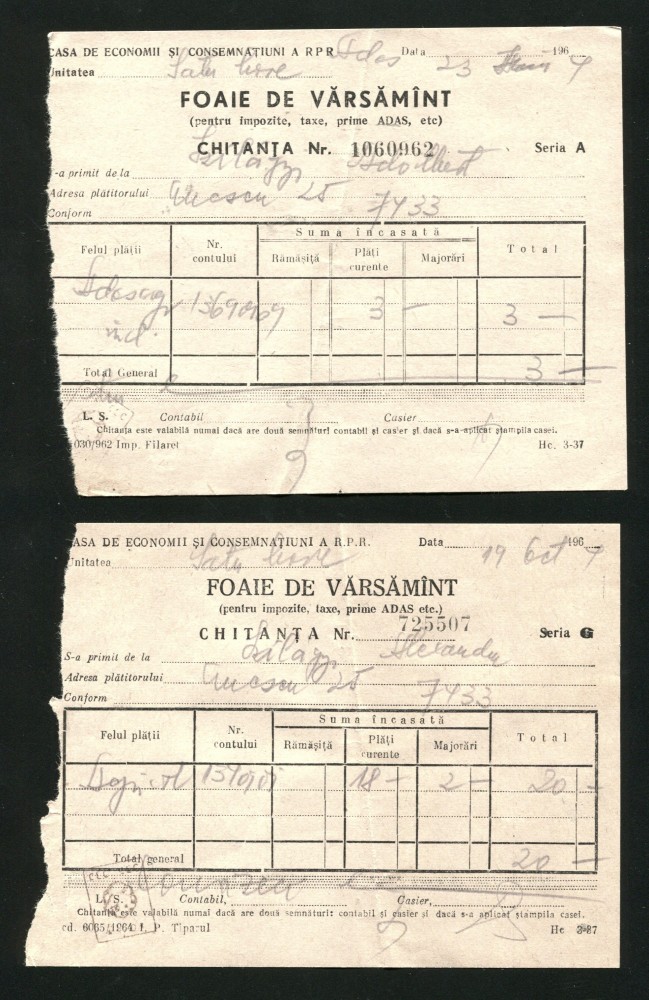 CASA DE ECONOMII ȘI CONSEMNAȚIUNI A R P R Data 23 196 4
Unitatea Satu Mare
FOAIE DE VĂRSĂMÎNT
(pentru impozite, taxe, prime ADAS, etc)
CHITANȚA Nr. 1060962 Seria A
-a primit de la Szilagyi
Adresa plătitorului 25
Conform 7433
Suma încasată
Felul plății Nr. contului Rămășiță Plăți curente Majorări Total
3 — 3 —
Total General 3 —
L. S. Contabil Casier
Chitanța este valabilă numai dacă are două semnături contabil și casier și dacă s-a aplicat ștampila casei.
030/962 Imp. Filaret Hc. 3-37
ASA DE ECONOMII ȘI CONSEMNAȚIUNI A R.P.R. Data 19 Oct 196 4
Unitatea Satu Mare
FOAIE DE VĂRSĂMÎNT
(pentru impozite, taxe, prime ADAS etc.)
CHITANȚA Nr. 725507 Seria G
S-a primit de la Szilagyi Alexandru
Adresa plătitorului 25
Conform 7433
Suma încasată
Felul plății Nr. contului Rămășiță Plăți curente Majorări Total
18 — 2 — 20 —
Total general 20 —
L. S. Contabil, Casier,
Chitanța este valabilă numai dacă are două semnături: contabil și casier și dacă s-a aplicat ștampila casei.
cd. 6065/1964 I. P. Tiparul Hc 3-37